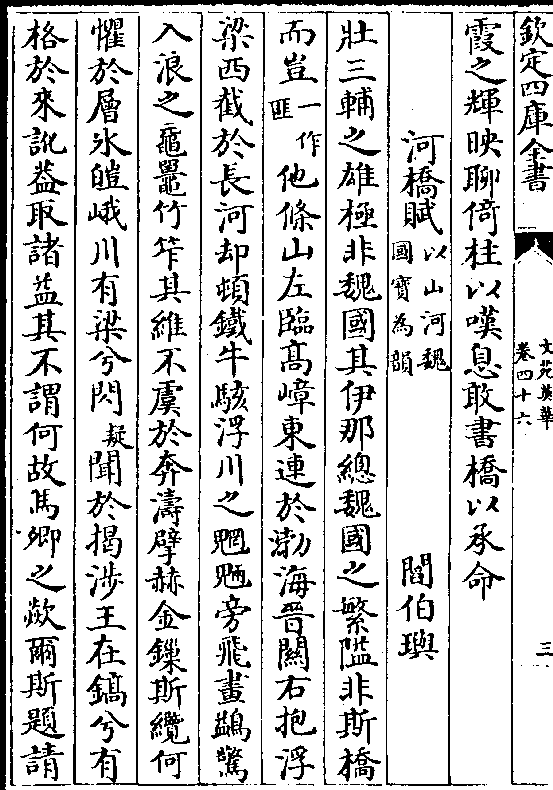 欽定四庫全書
文苑英華
卷四十六
三
霞之輝映聊倚柱以嘆息敢書橋以承命
河橋賦以山河魏國寶為韻 閻伯璵
壯三輔之雄極非魏國其伊那總魏國之繁隘非斯橋
而豈一作匪他條山左臨高嶂東連於渤海晉關右抱浮
梁西截於長河却頓鐵牛駭浮川之魍魎旁飛畫鷁驚
入浪之黿鼉竹笮其維不虞於奔濤擘赫金鏁斯纜何
懼於層氷皚峨川有梁兮閃疑聞於揭涉王在鎬兮有
格於來訛葢取諸葢其不謂何故馬卿之歘爾斯題請